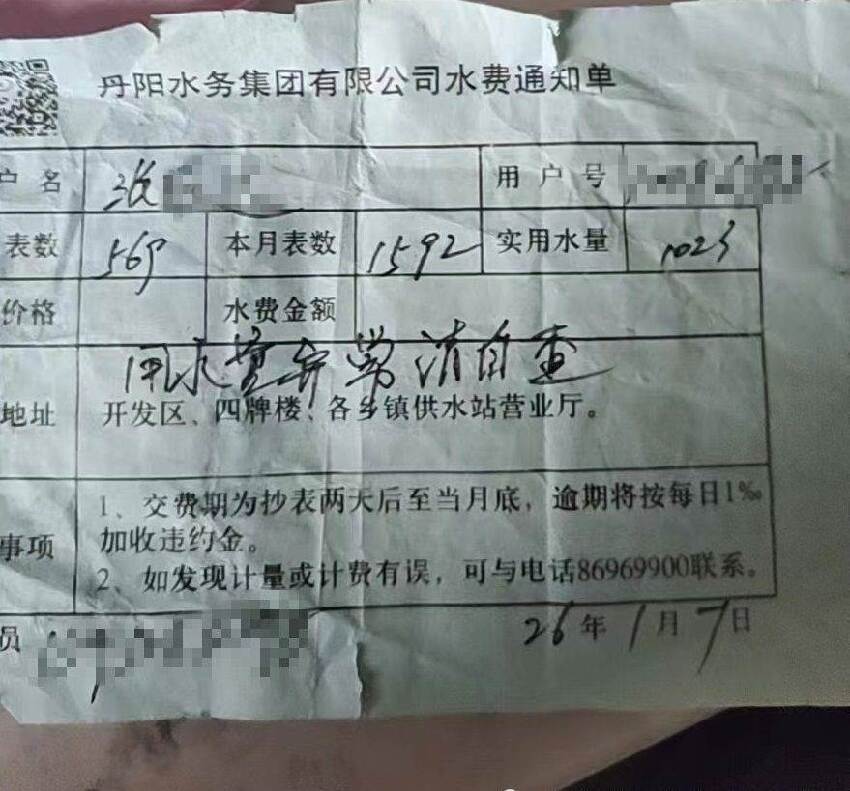 丹阳水务集团有限公司水费通知单
户 名 张 用 户 号
表数 569 本月表数 1592 实用水量 1023
价格 水费金额
用水量异常请自查
地址 开发区、四牌楼、各乡镇供水站营业厅。
1、交费期为抄表两天后至当月底，逾期将按每日1‰
事项 加收违约金。
2、如发现计量或计费有误，可与电话86969900联系。
员 26年1月7日